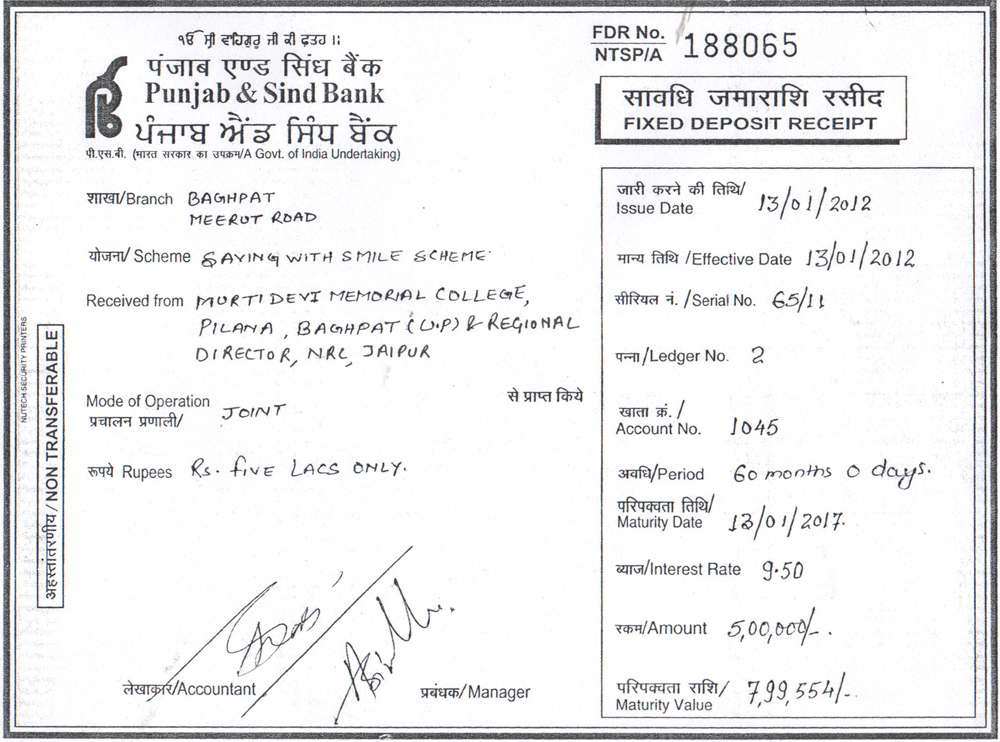 ੴ ਸ੍ਰੀ ਵਾਹਿਗੁਰੂ ਜੀ ਕੀ ਫਤਹ ।।
पंजाब एण्ड सिंध बैंक
Punjab & Sind Bank
ਪੰਜਾਬ ਐਂਡ ਸਿੰਧ ਬੈਂਕ
पी.एस.बी. (भारत सरकार का उपक्रम/A Govt. of India Undertaking)
FDR No.
NTSP/A 188065
सावधि जमाराशि रसीद
FIXED DEPOSIT RECEIPT
शाखा/Branch BAGHPAT
MEERUT ROAD
योजना/ Scheme SAVING WITH SMILE SCHEME
Received from MURTI DEVI MEMORIAL COLLEGE,
PILANA, BAGHPAT (U.P) & REGIONAL
DIRECTOR, NRC, JAIPUR
से प्राप्त किये
Mode of Operation
प्रचालन प्रणाली/ JOINT
रूपये Rupees Rs. FIVE LACS ONLY.
लेखाकार/Accountant
प्रबंधक/Manager
जारी करने की तिथि/
Issue Date 13/01/2012
मान्य तिथि /Effective Date 13/01/2012
सीरियल नं. /Serial No. 65/11
पन्ना/Ledger No. 2
खाता क्रं. /
Account No. 1045
अवधि/Period 60 months 0 days.
परिपक्वता तिथि/
Maturity Date 13/01/2017.
ब्याज/Interest Rate 9.50
रकम/Amount 5,00,000/-.
परिपक्वता राशि/
Maturity Value 7,99,554/-
अहस्तांतरणीय / NON TRANSFERABLE
NUTECH SECURITY PRINTERS